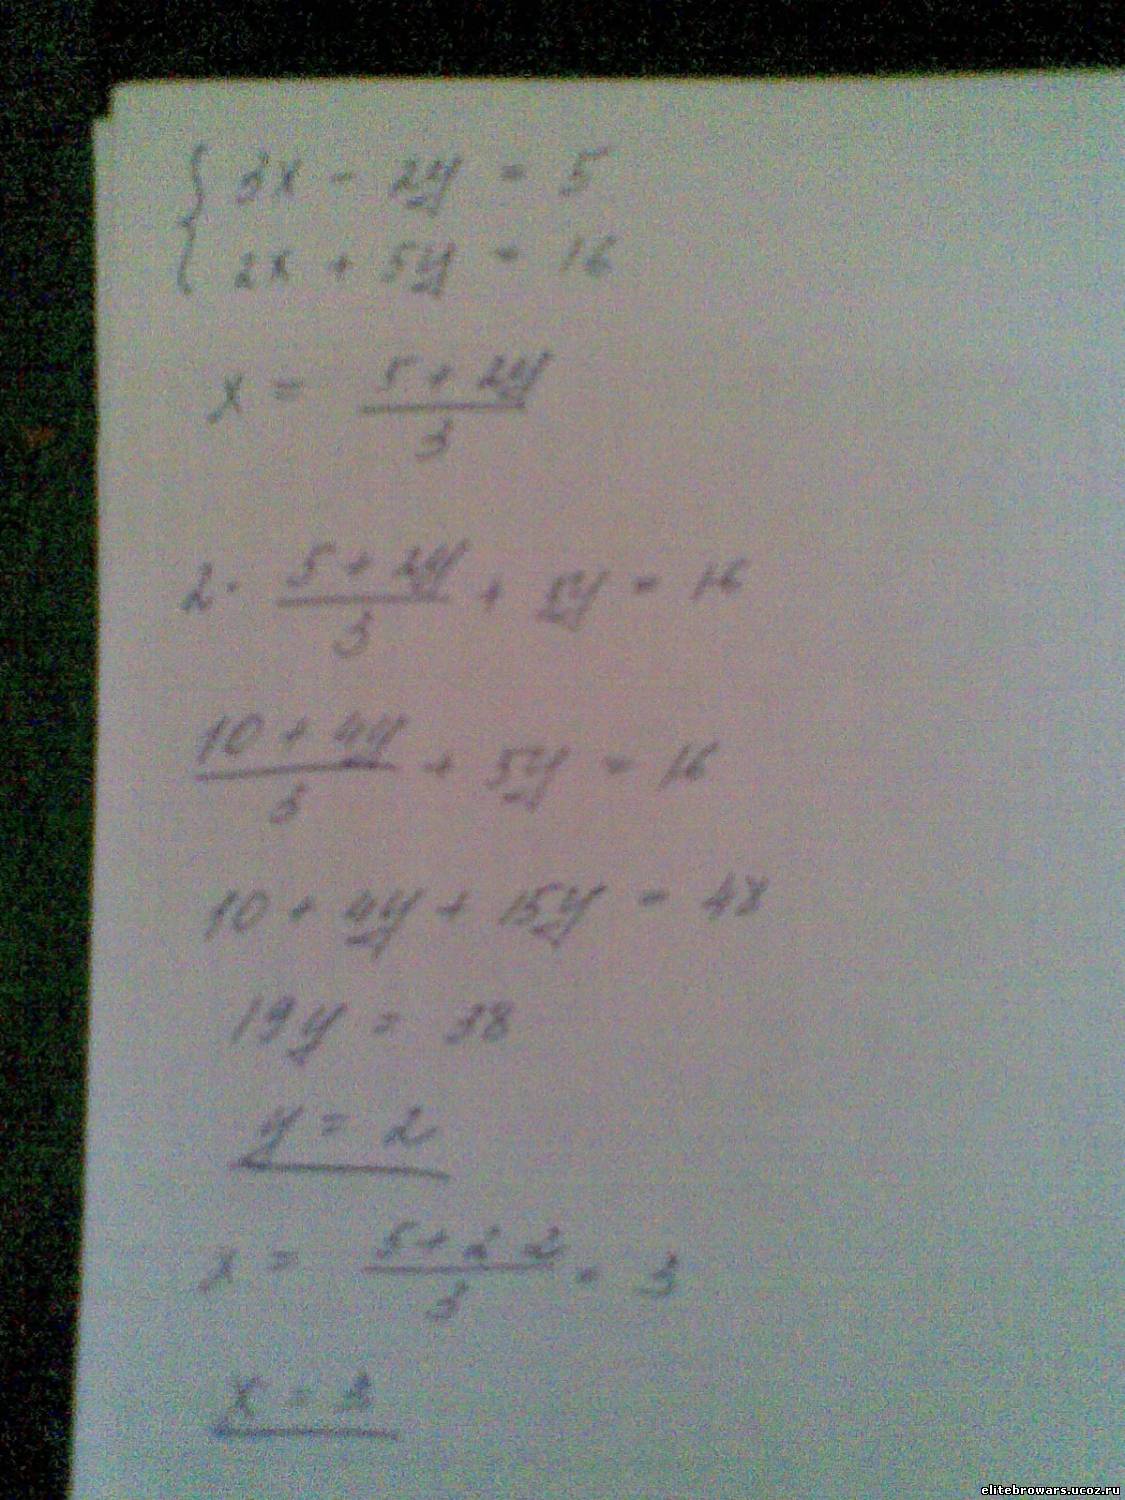 { 3x - 2y = 5
2x + 5y = 16
x = (5 + 2y)/3
2 · (5 + 2y)/3 + 5y = 16
(10 + 4y)/3 + 5y = 16
10 + 4y + 15y = 48
19y = 38
y = 2
x = (5 + 2 · 2)/3 = 3
x = 3
elitebrowars.ucoz.ru